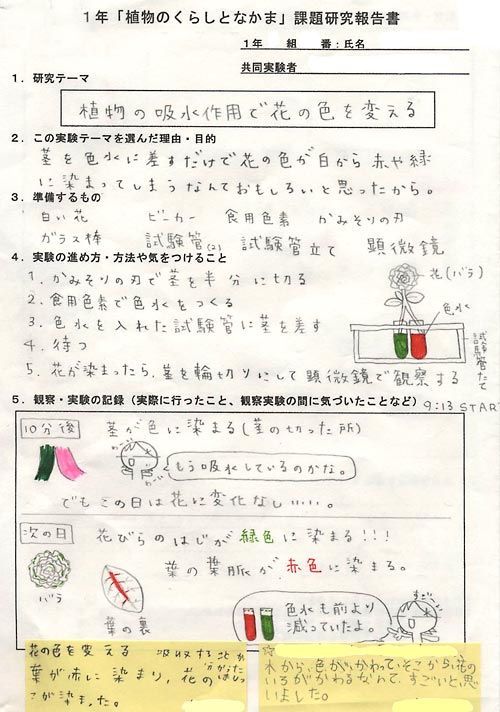 1年「植物のくらしとなかま」課題研究報告書
1年　組　番：氏名
共同実験者
1．研究テーマ
植物の吸水作用で花の色を変える
2．この実験テーマを選んだ理由・目的
茎を色水に差すだけで花の色が白から赤や緑
に染まってしまうなんておもしろいと思ったから。
3．準備するもの
白い花　ビーカー　食用色素　かみそりの刃
ガラス棒　試験管(2)　試験管立て　顕微鏡
4．実験の進め方・方法や気をつけること
1．かみそりの刃で茎を半分に切る
2．食用色素で色水をつくる
3．色水を入れた試験管に茎を差す
4．待つ
5．花が染まったら、茎を輪切りにして顕微鏡で観察する
花(バラ)
色水
試験管たて
5．観察・実験の記録（実際に行ったこと、観察実験の間に気づいたことなど）
9:13 START
10分後
茎が色に染まる(茎の切った所)
もう吸水しているのかな。
でもこの日は花に変化なし……。
次の日
花びらのはじが緑色に染まる!!!
葉の葉脈が赤色に染まる。
バラ
葉の裏
色水も前より
減っていたよ。
すごい
花の色を変える
葉が赤に染まり、花のはじっ
こが染まった。
木から、色がかわって、そこから花の
いろがかわるなんて、すごいと思
いました。